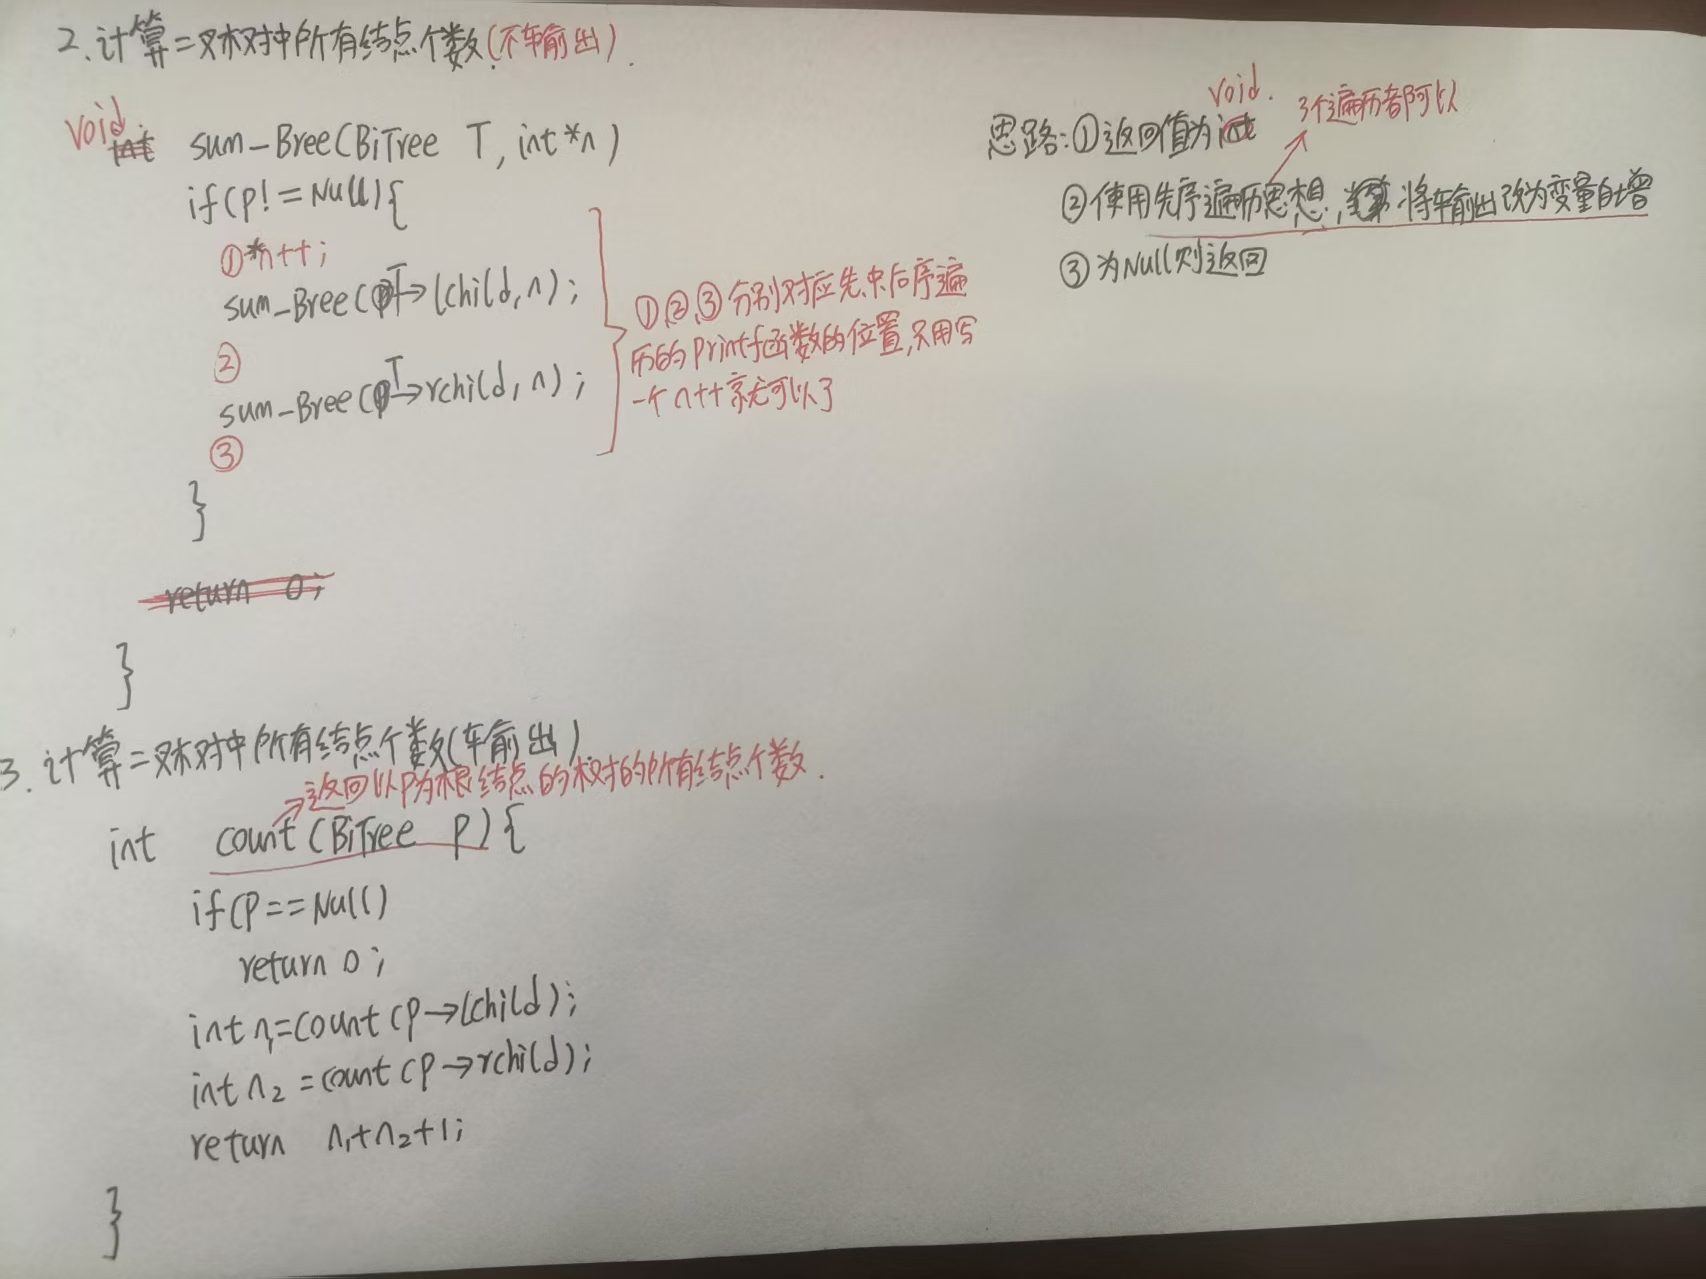 2.计算二叉树中所有结点个数(不输出).
void
int sum-Bree(BiTree T, int*n)
if(p!=Null){
①*n++;
sum-Bree(T→lchild,n);
②
sum-Bree(T→rchild,n);
③
}
return 0;
}
①,②,③分别对应先.中.后序遍
历的printf函数的位置,只用写
一个n++就可以了
void. 3个遍历都可以
思路:①返回值为int
②使用先序遍历思想,将输出改为变量自增
③为Null则返回
3.计算二叉树中所有结点个数(输出)
→返回以P为根结点的树的所有结点个数.
int count(BiTree P){
if(P==Null)
return 0;
int n₁=count(P→lchild);
int n₂=count(P→rchild);
return n₁+n₂+1;
}